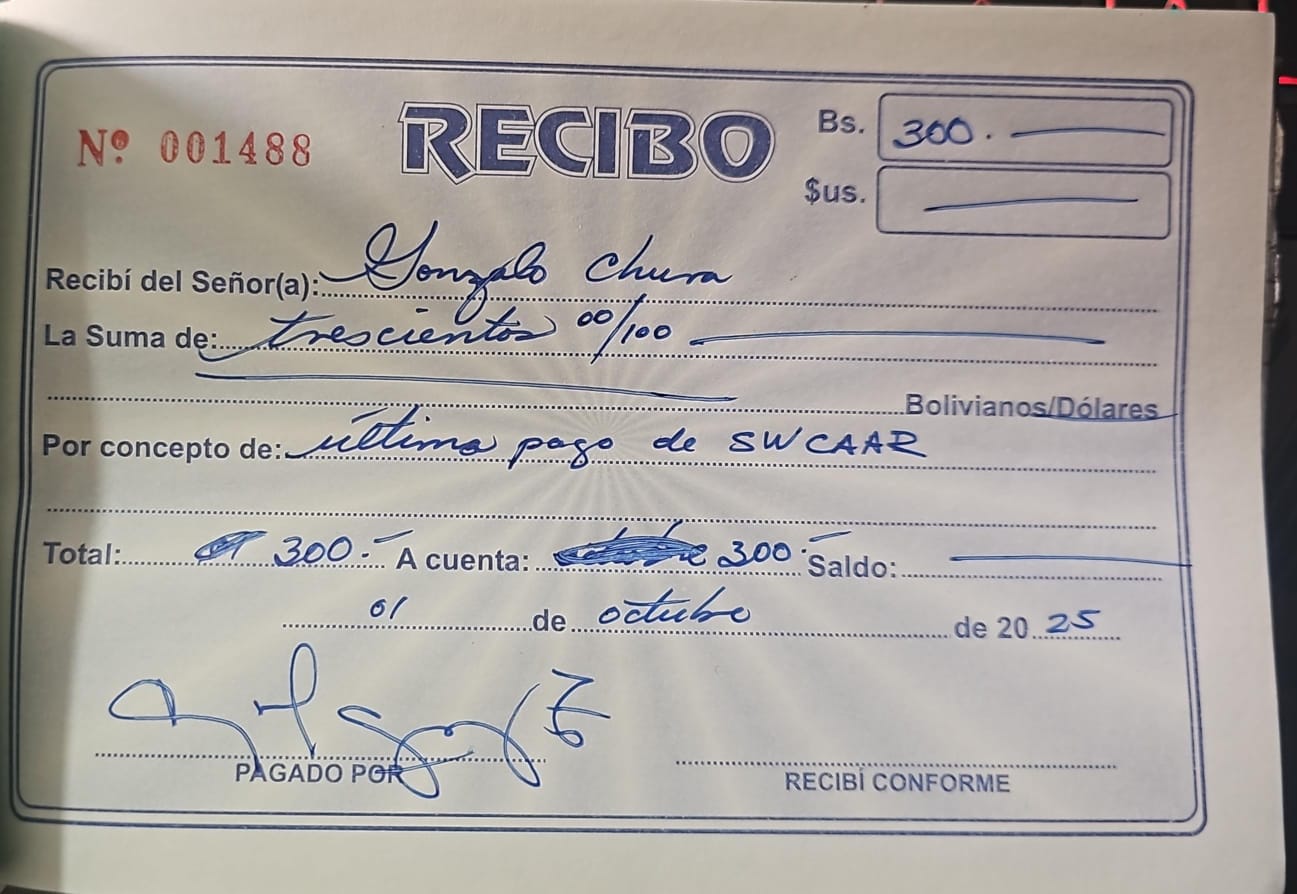 Nº 001488
RECIBO
Bs. 300.
$us.
Recibí del Señor(a): Gonzalo Chura
La Suma de: trescientos 00/100
Bolivianos/Dólares
Por concepto de: última pago de SWCAAR
Total: 300.- A cuenta: 300.- Saldo:
01 de octubre de 2025
PAGADO POR
RECIBÍ CONFORME